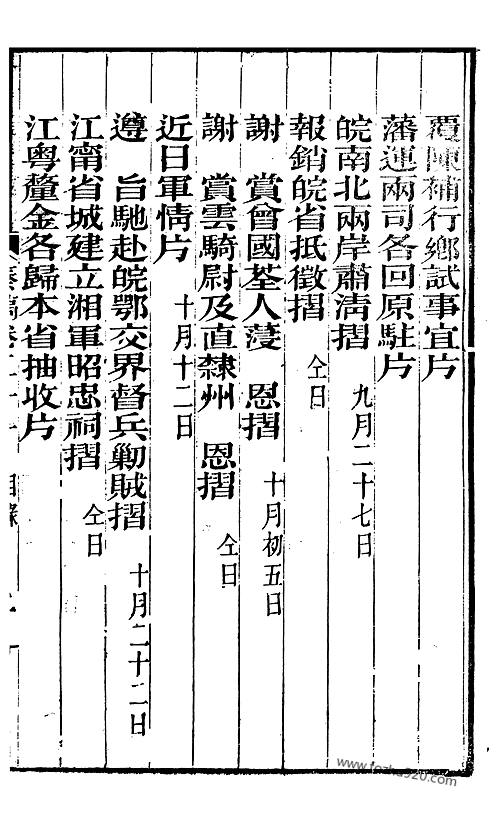 覆陳補行鄉試事宜片
藩運兩司各回原駐片
皖南北兩岸肅淸摺 九月二十七日
報銷皖省抵徵摺 仝日
謝 賞曾國荃人蓡 恩摺 十月初五日
謝 賞雲騎尉及直隸州 恩摺 仝日
近日軍情片 十月十二日
遵 旨馳赴皖鄂交界督兵勦賊摺 十月二十二日
江甯省城建立湘軍昭忠祠摺 仝日
江粵釐金各歸本省抽收片
奏稿卷二十一 目錄
www.fozhu920.com